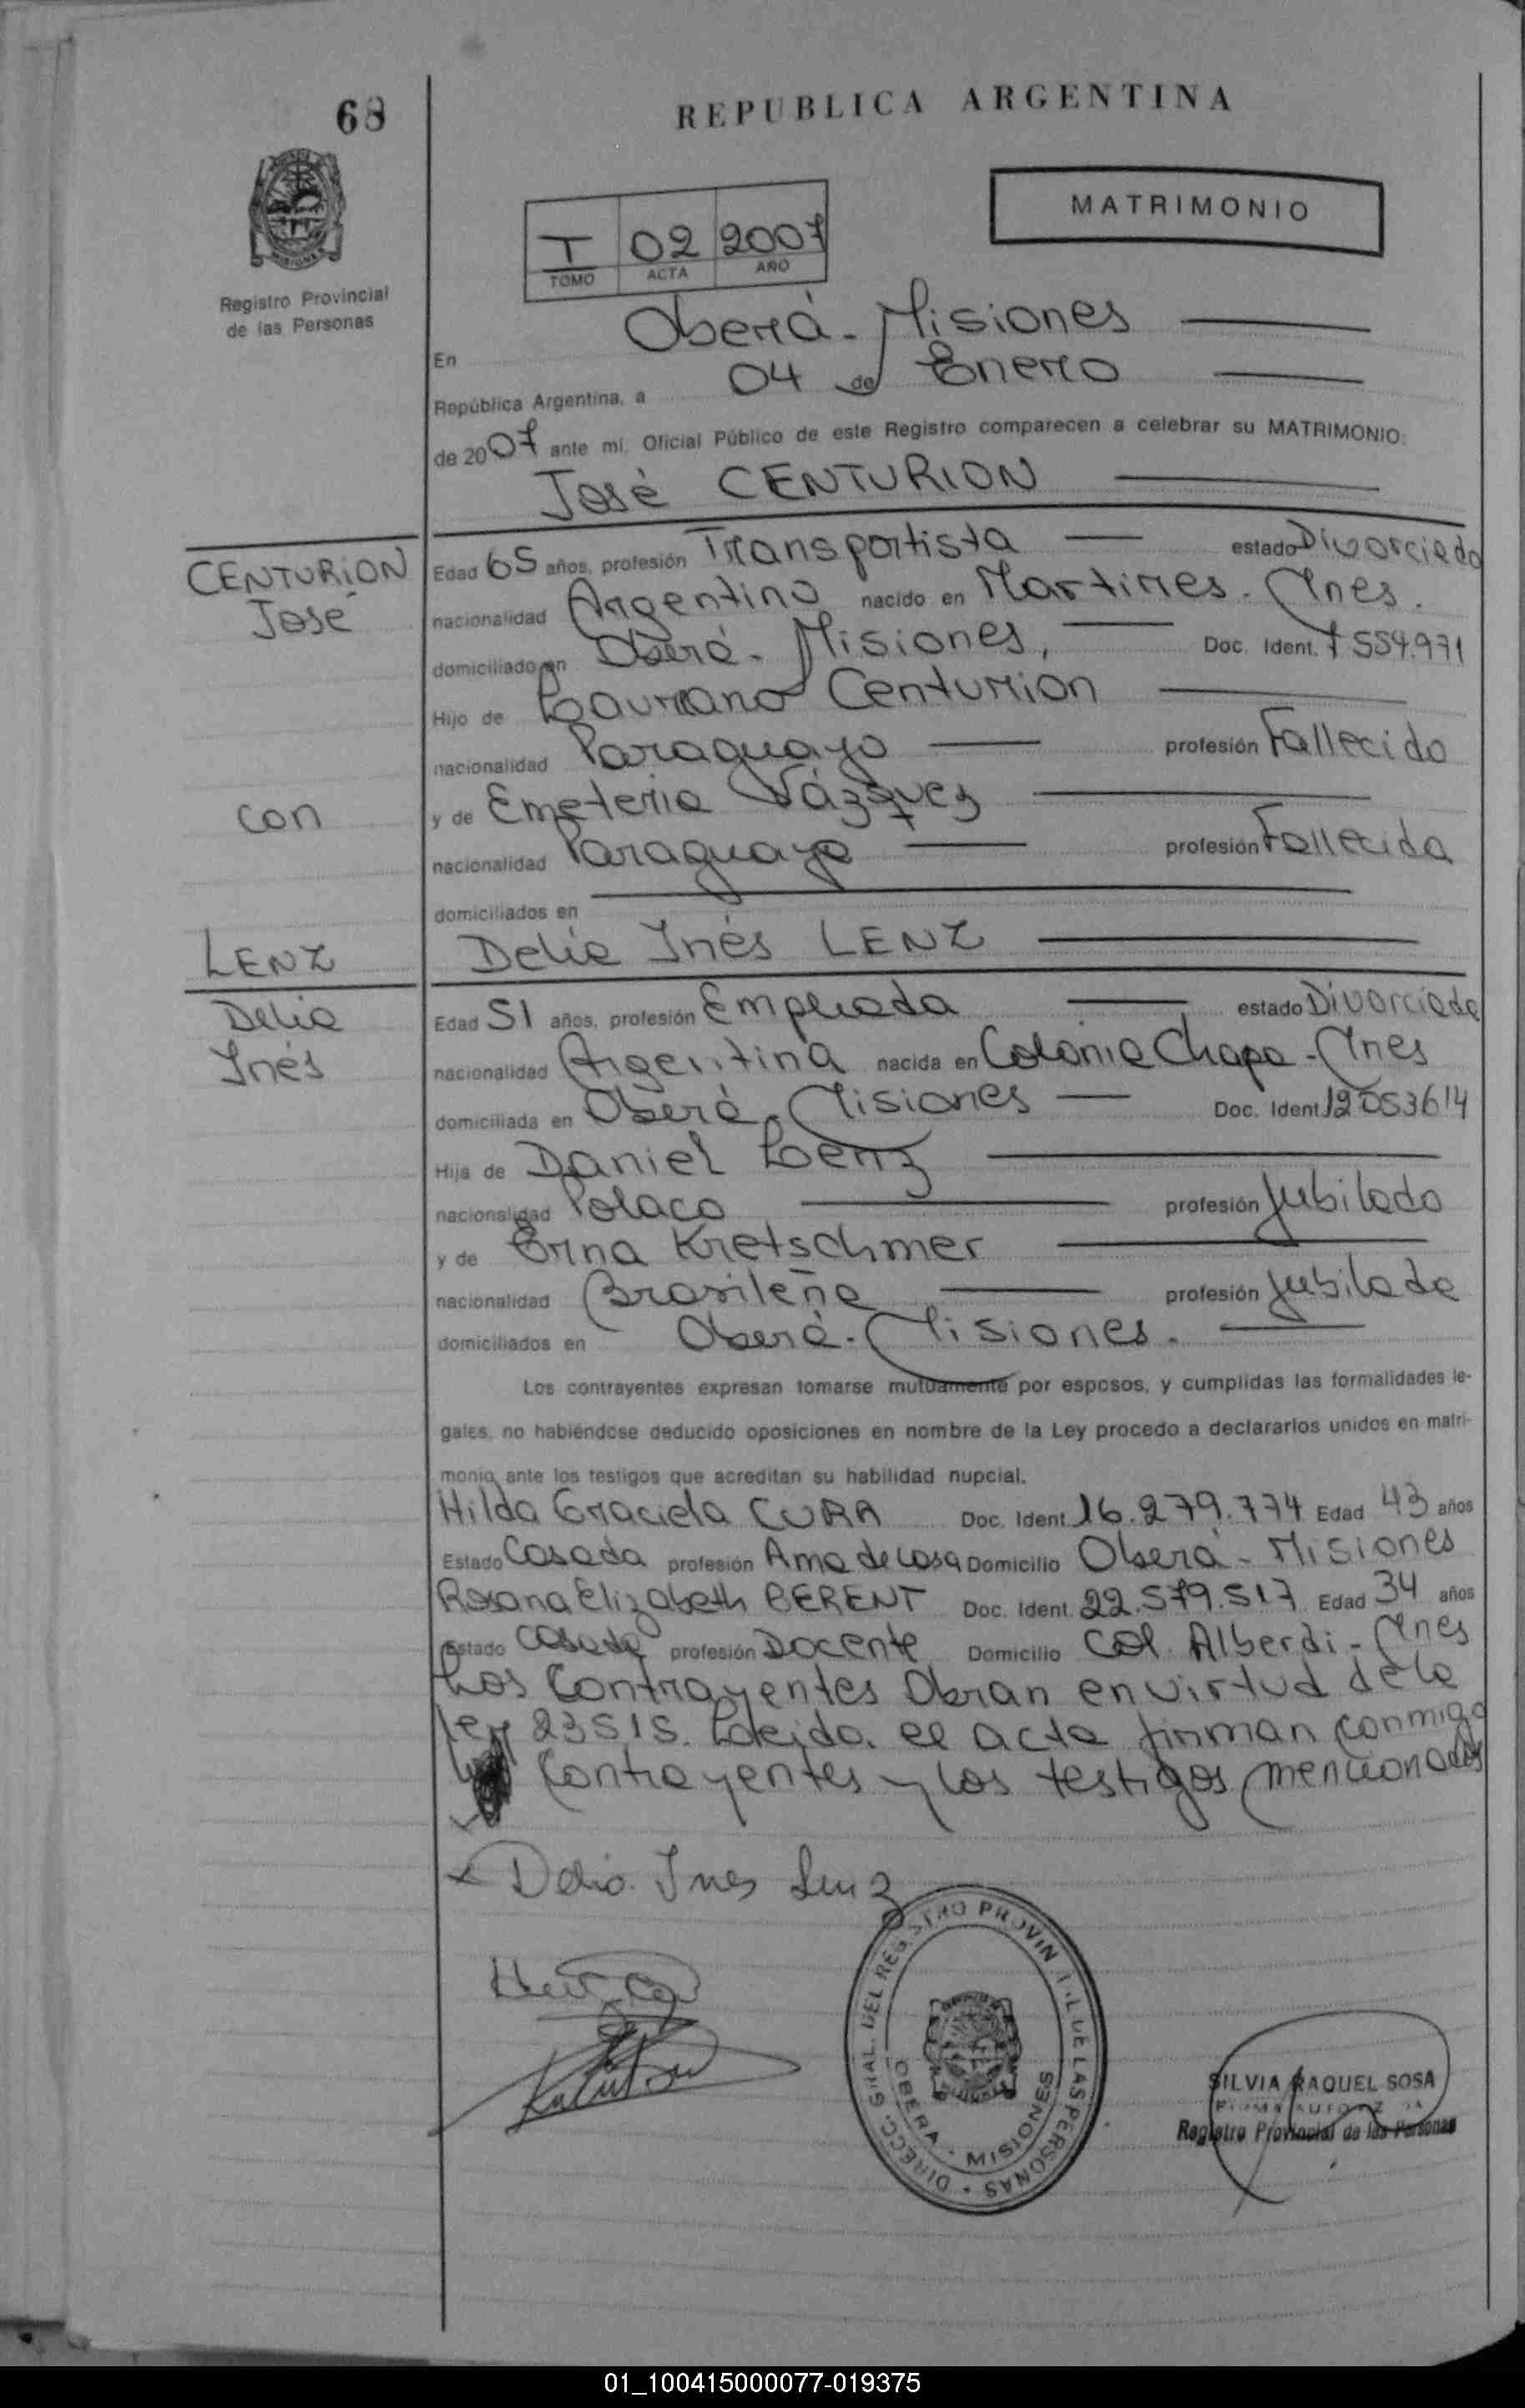 68
REPUBLICA ARGENTINA
MATRIMONIO
I 02 2007
TOMO ACTA AÑO
Registro Provincial
de las Personas
En Oberá - Misiones
República Argentina, a 04 de Enero
de 2007 ante mi, Oficial Público de este Registro comparecen a celebrar su MATRIMONIO:
José CENTURION
CENTURION
José
Edad 65 años, profesión Transportista estado Divorciado
nacionalidad Argentino nacido en Martires - Mnes.
domiciliado en Oberá - Misiones, Doc. Ident. 7554.971
Hijo de Centurion
nacionalidad Paraguayo profesión Fallecido
con
y de Emeteria Vázquez
nacionalidad Paraguaya profesión Fallecida
domiciliados en
LENZ
Delia
Inés
Delia Inés LENZ
Edad 51 años, profesión Empleada estado Divorciada
nacionalidad Argentina nacida en Colonia Chapa - Mnes
domiciliada en Oberá - Misiones Doc. Ident. 12053614
Hija de Daniel Lenz
nacionalidad Polaco profesión Jubilado
y de Erna Kretschmer
nacionalidad Brasileña profesión Jubilada
domiciliados en Oberá - Misiones.
Los contrayentes expresan tomarse mutuamente por esposos, y cumplidas las formalidades le-
gales, no habiéndose deducido oposiciones en nombre de la Ley procedo a declararlos unidos en matri-
monio ante los testigos que acreditan su habilidad nupcial.
Hilda Graciela CURA Doc. Ident. 16.279.774 Edad 43 años
Estado Casada profesión Ama de casa Domicilio Oberá - Misiones
Rosana Elizabeth BERENT Doc. Ident. 22.579.517 Edad 34 años
Estado Casada profesión Docente Domicilio Col. Alberdi - Mnes
Los Contrayentes Obran en virtud de la
ley 23515. Leida el acta firman conmigo
Contrayentes y los testigos mencionados
x Delia Ines Lenz
DIRECC. GRAL. DEL REGISTRO PROVINCIAL DE LAS PERSONAS
OBERA - MISIONES
SILVIA RAQUEL SOSA
FIRMA AUTORIZADA
Registro Provincial de las Personas
01_100415000077-019375